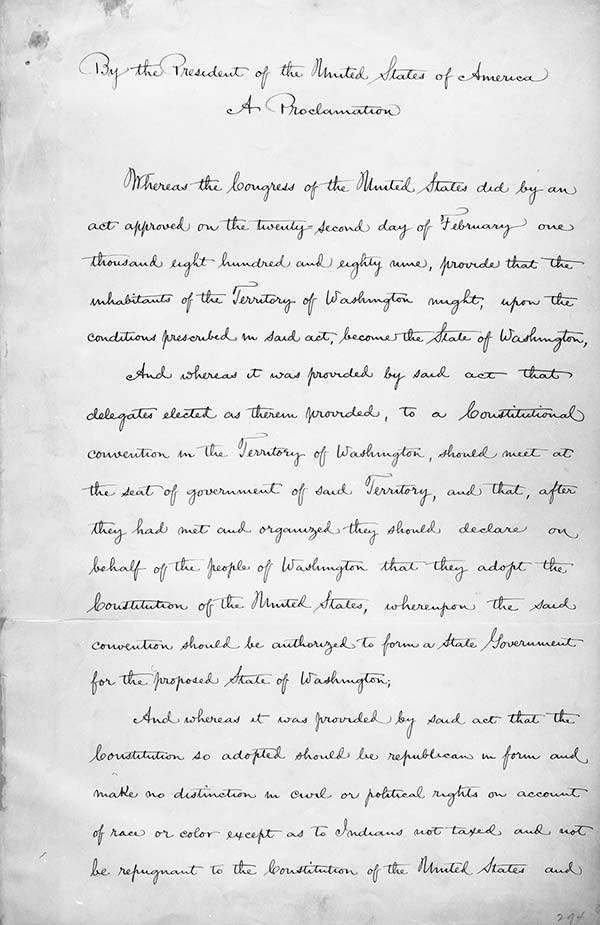 By the President of the United States of America
A Proclamation
Whereas the Congress of the United States did by an
act approved on the twenty-second day of February one
thousand eight hundred and eighty nine, provide that the
inhabitants of the Territory of Washington might, upon the
conditions prescribed in said act, become the State of Washington,
And whereas it was provided by said act that
delegates elected as therein provided, to a Constitutional
convention in the Territory of Washington, should meet at
the seat of government of said Territory, and that, after
they had met and organized they should declare on
behalf of the people of Washington that they adopt the
Constitution of the United States, whereupon the said
convention should be authorized to form a State Government
for the proposed State of Washington;
And whereas it was provided by said act that the
Constitution so adopted should be republican in form and
make no distinction in civil or political rights on account
of race or color except as to Indians not taxed and not
be repugnant to the Constitution of the United States and
294